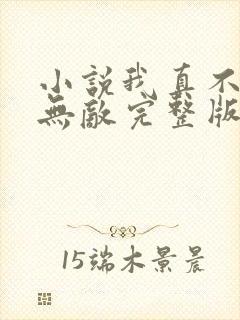 小說我真不
無敵完整版
15端木景晨